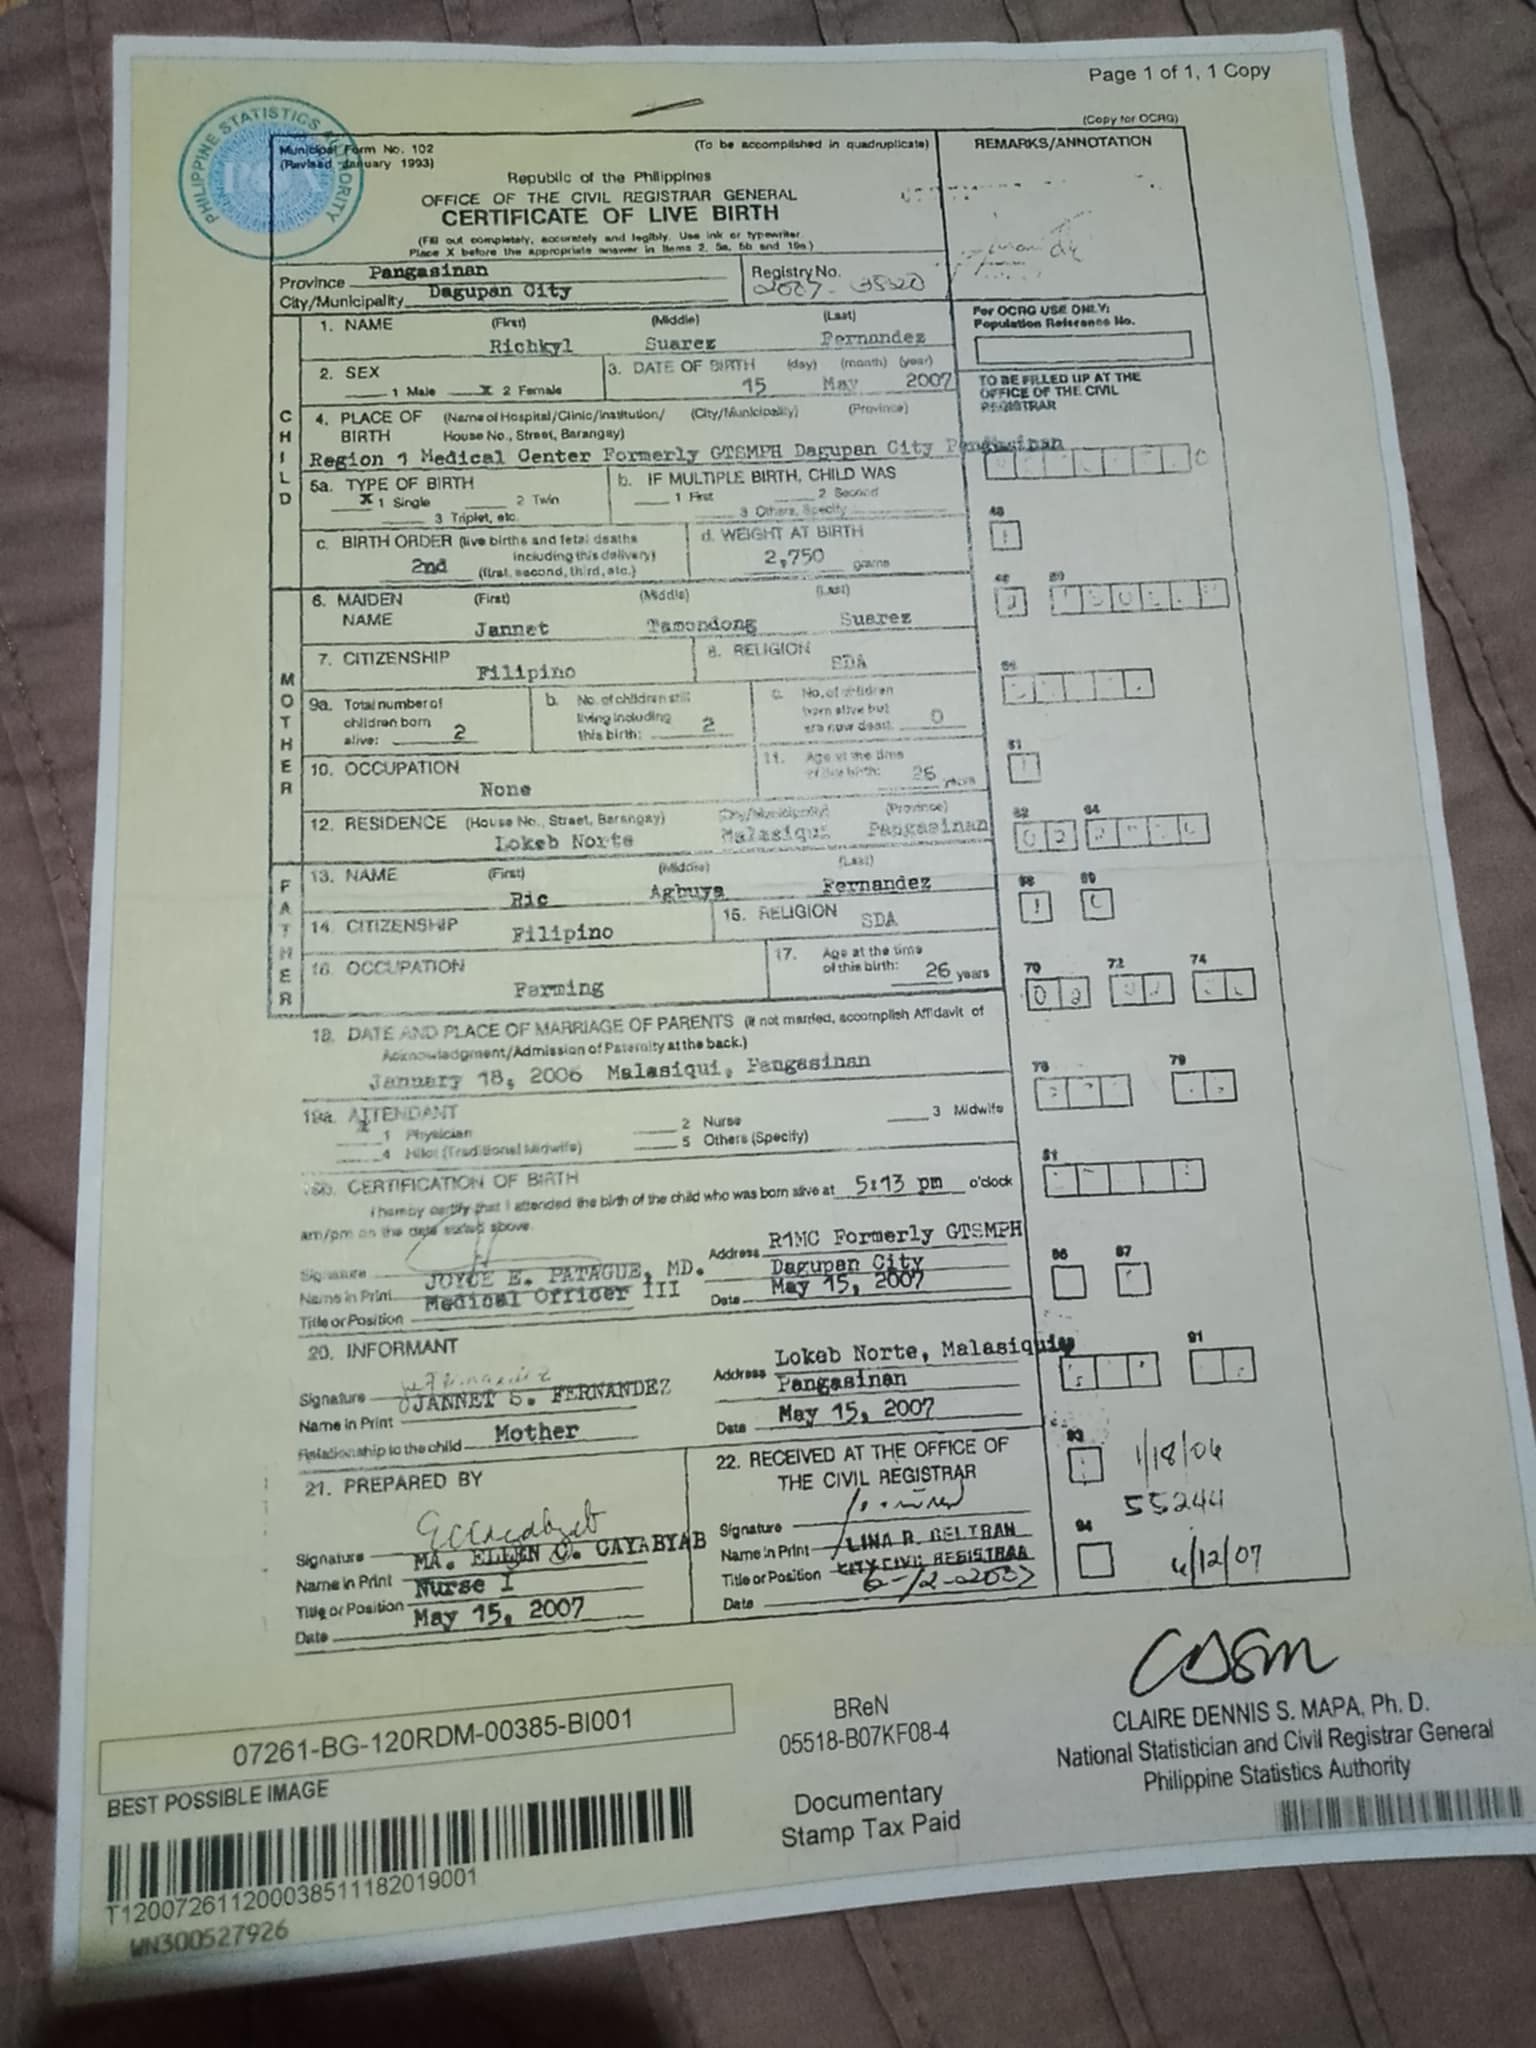 Page 1 of 1, 1 Copy
(Copy for OCRG)
PHILIPPINE STATISTICS AUTHORITY
Municipal Form No. 102 (To be accomplished in quadruplicate) REMARKS/ANNOTATION
(Revised January 1993)
Republic of the Philippines
OFFICE OF THE CIVIL REGISTRAR GENERAL
CERTIFICATE OF LIVE BIRTH
(Fill out completely, accurately and legibly. Use ink or typewriter.
Place X before the appropriate answer in Items 2, 5a, 5b and 19a.)
Province Pangasinan Registry No.
City/Municipality Dagupan City 2007-
For OCRG USE ONLY:
Population Reference No.
CHILD
1. NAME (First) (Middle) (Last)
Richkyl Suarez Fernandez
2. SEX 3. DATE OF BIRTH (day) (month) (year)
1 Male X 2 Female 15 May 2007
TO BE FILLED UP AT THE
OFFICE OF THE CIVIL
REGISTRAR
4. PLACE OF (Name of Hospital/Clinic/Institution/ (City/Municipality) (Province)
BIRTH House No., Street, Barangay)
Region 1 Medical Center Formerly GTSMPH Dagupan City Pangasinan
5a. TYPE OF BIRTH b. IF MULTIPLE BIRTH, CHILD WAS
X 1 Single 2 Twin 1 First 2 Second
3 Triplet, etc. 3 Others, Specify
c. BIRTH ORDER (live births and fetal deaths d. WEIGHT AT BIRTH
including this delivery)
2nd (first, second, third, etc.) 2,750 grams
MOTHER
6. MAIDEN (First) (Middle) (Last)
NAME Jannet Tamondong Suarez
7. CITIZENSHIP Filipino 8. RELIGION SDA
9a. Total number of b. No. of children still c. No. of children
children born living including born alive but
alive: 2 this birth: 2 are now dead: 0
10. OCCUPATION None 11. Age at the time
of this birth: 26 years
12. RESIDENCE (House No., Street, Barangay) (City/Municipality) (Province)
Lokeb Norte Malasiqui Pangasinan
FATHER
13. NAME (First) (Middle) (Last)
Ric Agbuya Fernandez
14. CITIZENSHIP Filipino 15. RELIGION SDA
16. OCCUPATION Farming 17. Age at the time
of this birth: 26 years
70 72 74
18. DATE AND PLACE OF MARRIAGE OF PARENTS (If not married, accomplish Affidavit of
Acknowledgment/Admission of Paternity at the back.)
January 18, 2006 Malasiqui, Pangasinan
19a. ATTENDANT
X 1 Physician 2 Nurse 3 Midwife
4 Hilot (Traditional Midwife) 5 Others (Specify)
19b. CERTIFICATION OF BIRTH
I hereby certify that I attended the birth of the child who was born alive at 5:13 pm o'clock
am/pm on the date stated above.
Signature Address R1MC Formerly GTSMPH
Name in Print JOYCE E. PATAGUE, MD. Dagupan City
Title or Position Medical Officer III Date May 15, 2007
86 87
20. INFORMANT
Signature Address Lokeb Norte, Malasiqui,
Name in Print JANNET S. FERNANDEZ Pangasinan
Relationship to the child Mother Date May 15, 2007
91
21. PREPARED BY 22. RECEIVED AT THE OFFICE OF
THE CIVIL REGISTRAR
1/18/06
55244
Signature Signature
Name in Print MA. ELLEN C. CAYABYAB Name in Print LINA R. BELTRAN
Title or Position Nurse I Title or Position CITY CIVIL REGISTRAR
Date May 15, 2007 Date 6-12-2007
94
6/12/07
07261-BG-120RDM-00385-BI001
BEST POSSIBLE IMAGE
T120072611200038511182019001
WN300527926
BReN
05518-B07KF08-4
Documentary
Stamp Tax Paid
CLAIRE DENNIS S. MAPA, Ph. D.
National Statistician and Civil Registrar General
Philippine Statistics Authority